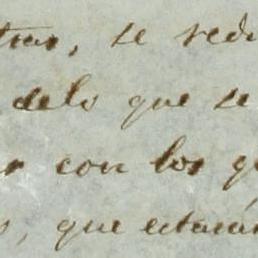 tras, se redu
delo que se
r con los q
s, que estaun